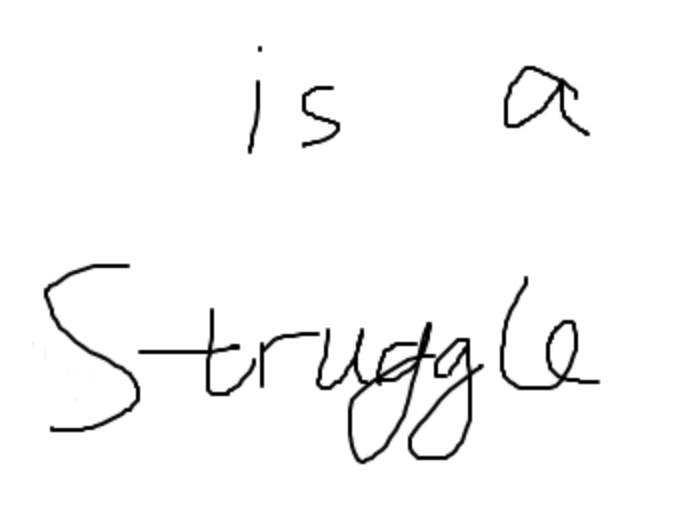 is a
Struggle